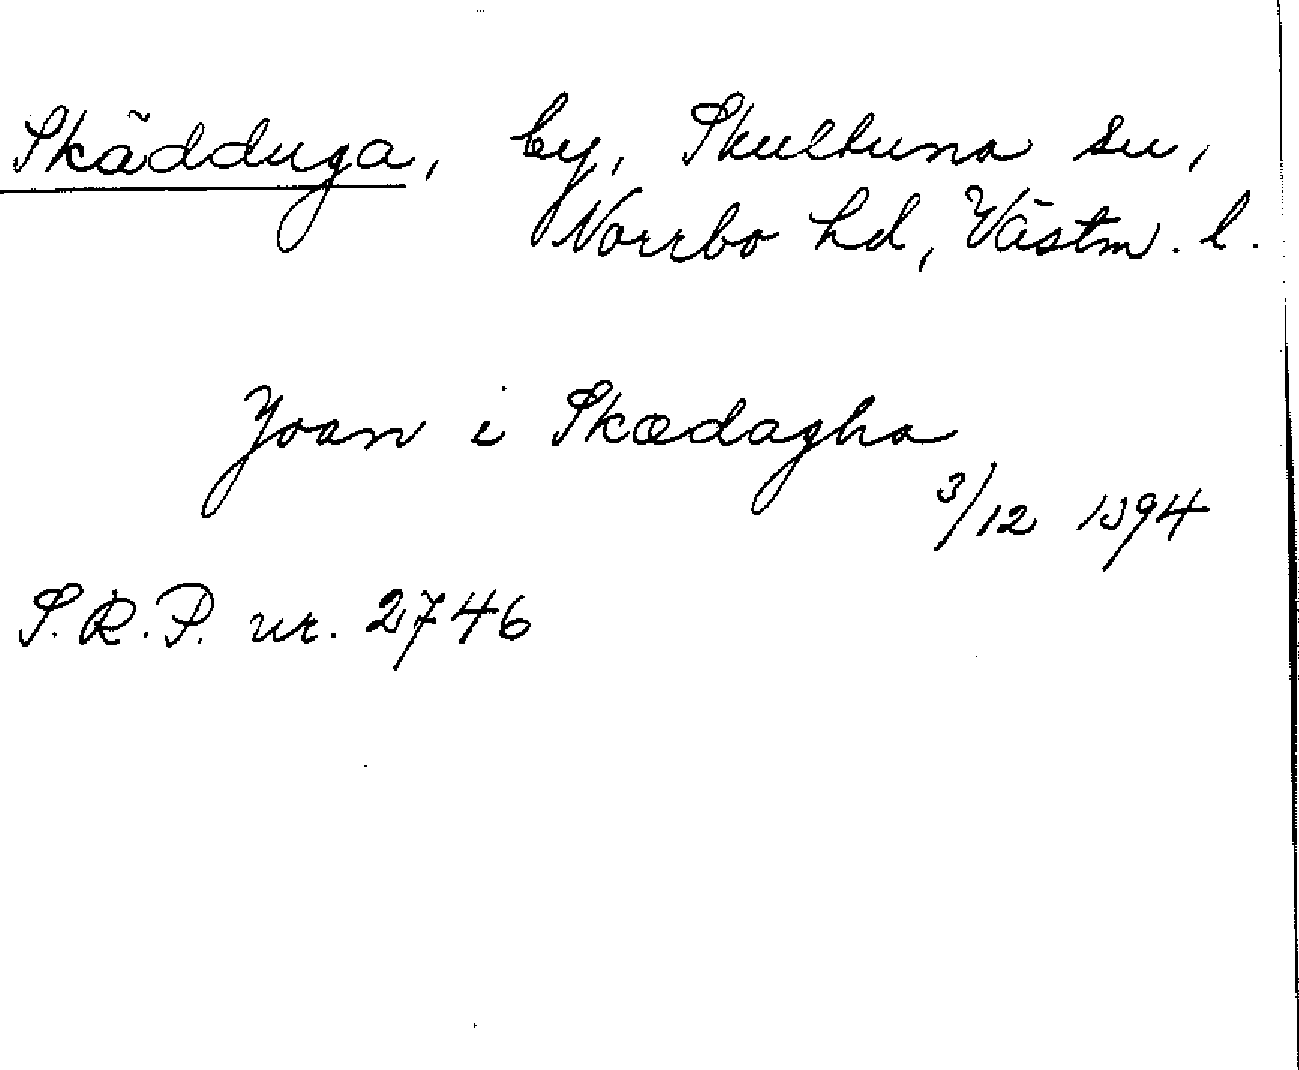 Skädduga, by, Skultuna sn,
Norrbo hd, Västm. l.
Joan i Skædagha
3/12 1394
S.R.P. nr. 2746